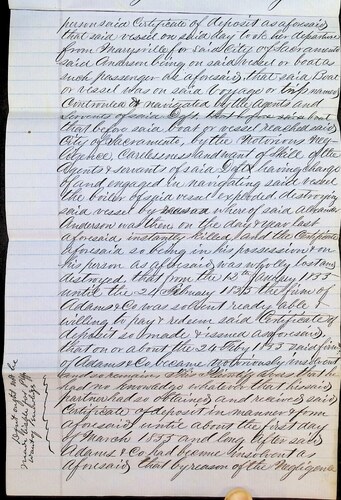 person said Certificate of deposit as aforesaid
that said vessel on said day took her departure
from Marysville for said City of Sacramento
said Anderson being on said vessel or boat as
such passenger as aforesaid, that said Boat
or vessel was on said voyage or trip named
Controlled & navigated by the Agents and
Servants of said Deft. that before said boat
that before said boat or vessel reached said
City of Sacramento, by the Notorious Neg-
ligence, Carelessness and want of skill of the
Agents & servants of said Deft having charge
of and engaged in navigating said vessel
the boiler of said vessel exploded destroying
said vessel by whereof said
Anderson was then on the day & year last
aforesaid instantly killed, and the Certificate
aforesaid so being in his possession & on
his person as aforesaid was wholly lost and
destroyed that from the 12th 1855
until the 21 February 1855 the firm of
Adams & Co was solvent ready able &
willing to pay & redeem said Certificate of
deposit so made & issued as aforesaid,
that on or about the 2 Feby 1855 said firm
of Adams & Co became notoriously insolvent
that he
had no knowledge whatever that his said
partner had so obtained and received said
Certificate of deposit in manner & form
aforesaid until about the first day
of March 1855 and long after said
Adams & Co had become insolvent as
aforesaid that by reason of the Negligence